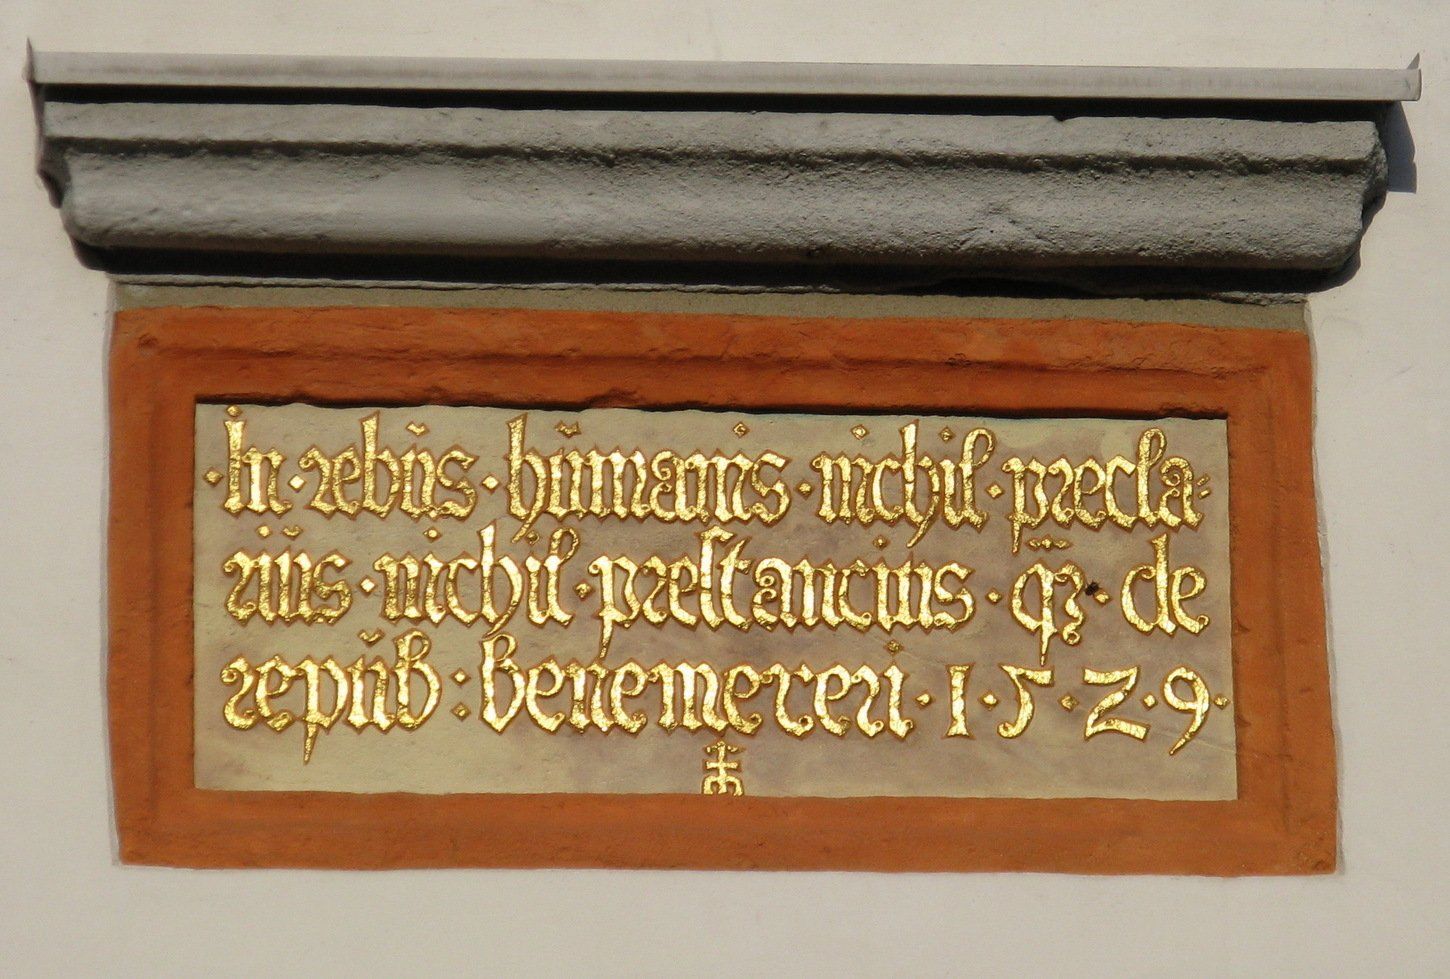 ·In·rebus·humanis·nichil·precla-
rius·nichil·prestancius·q̄·de
republ:benemereri·1·5·2·9·